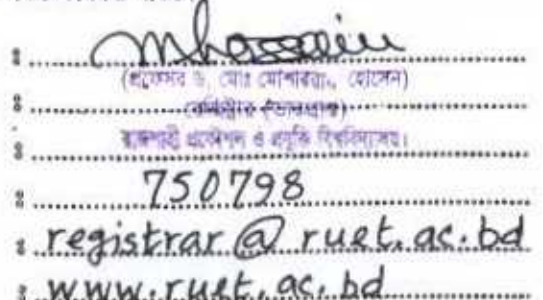 : mhossain
(প্রফেসর ড. মোঃ মোশাররফ হোসেন)
: রেজিস্ট্রার (ভারপ্রাপ্ত)
: রাজশাহী প্রকৌশল ও প্রযুক্তি বিশ্ববিদ্যালয়।
: 750798
: registrar @ ruet.ac.bd
: www.ruet.ac.bd